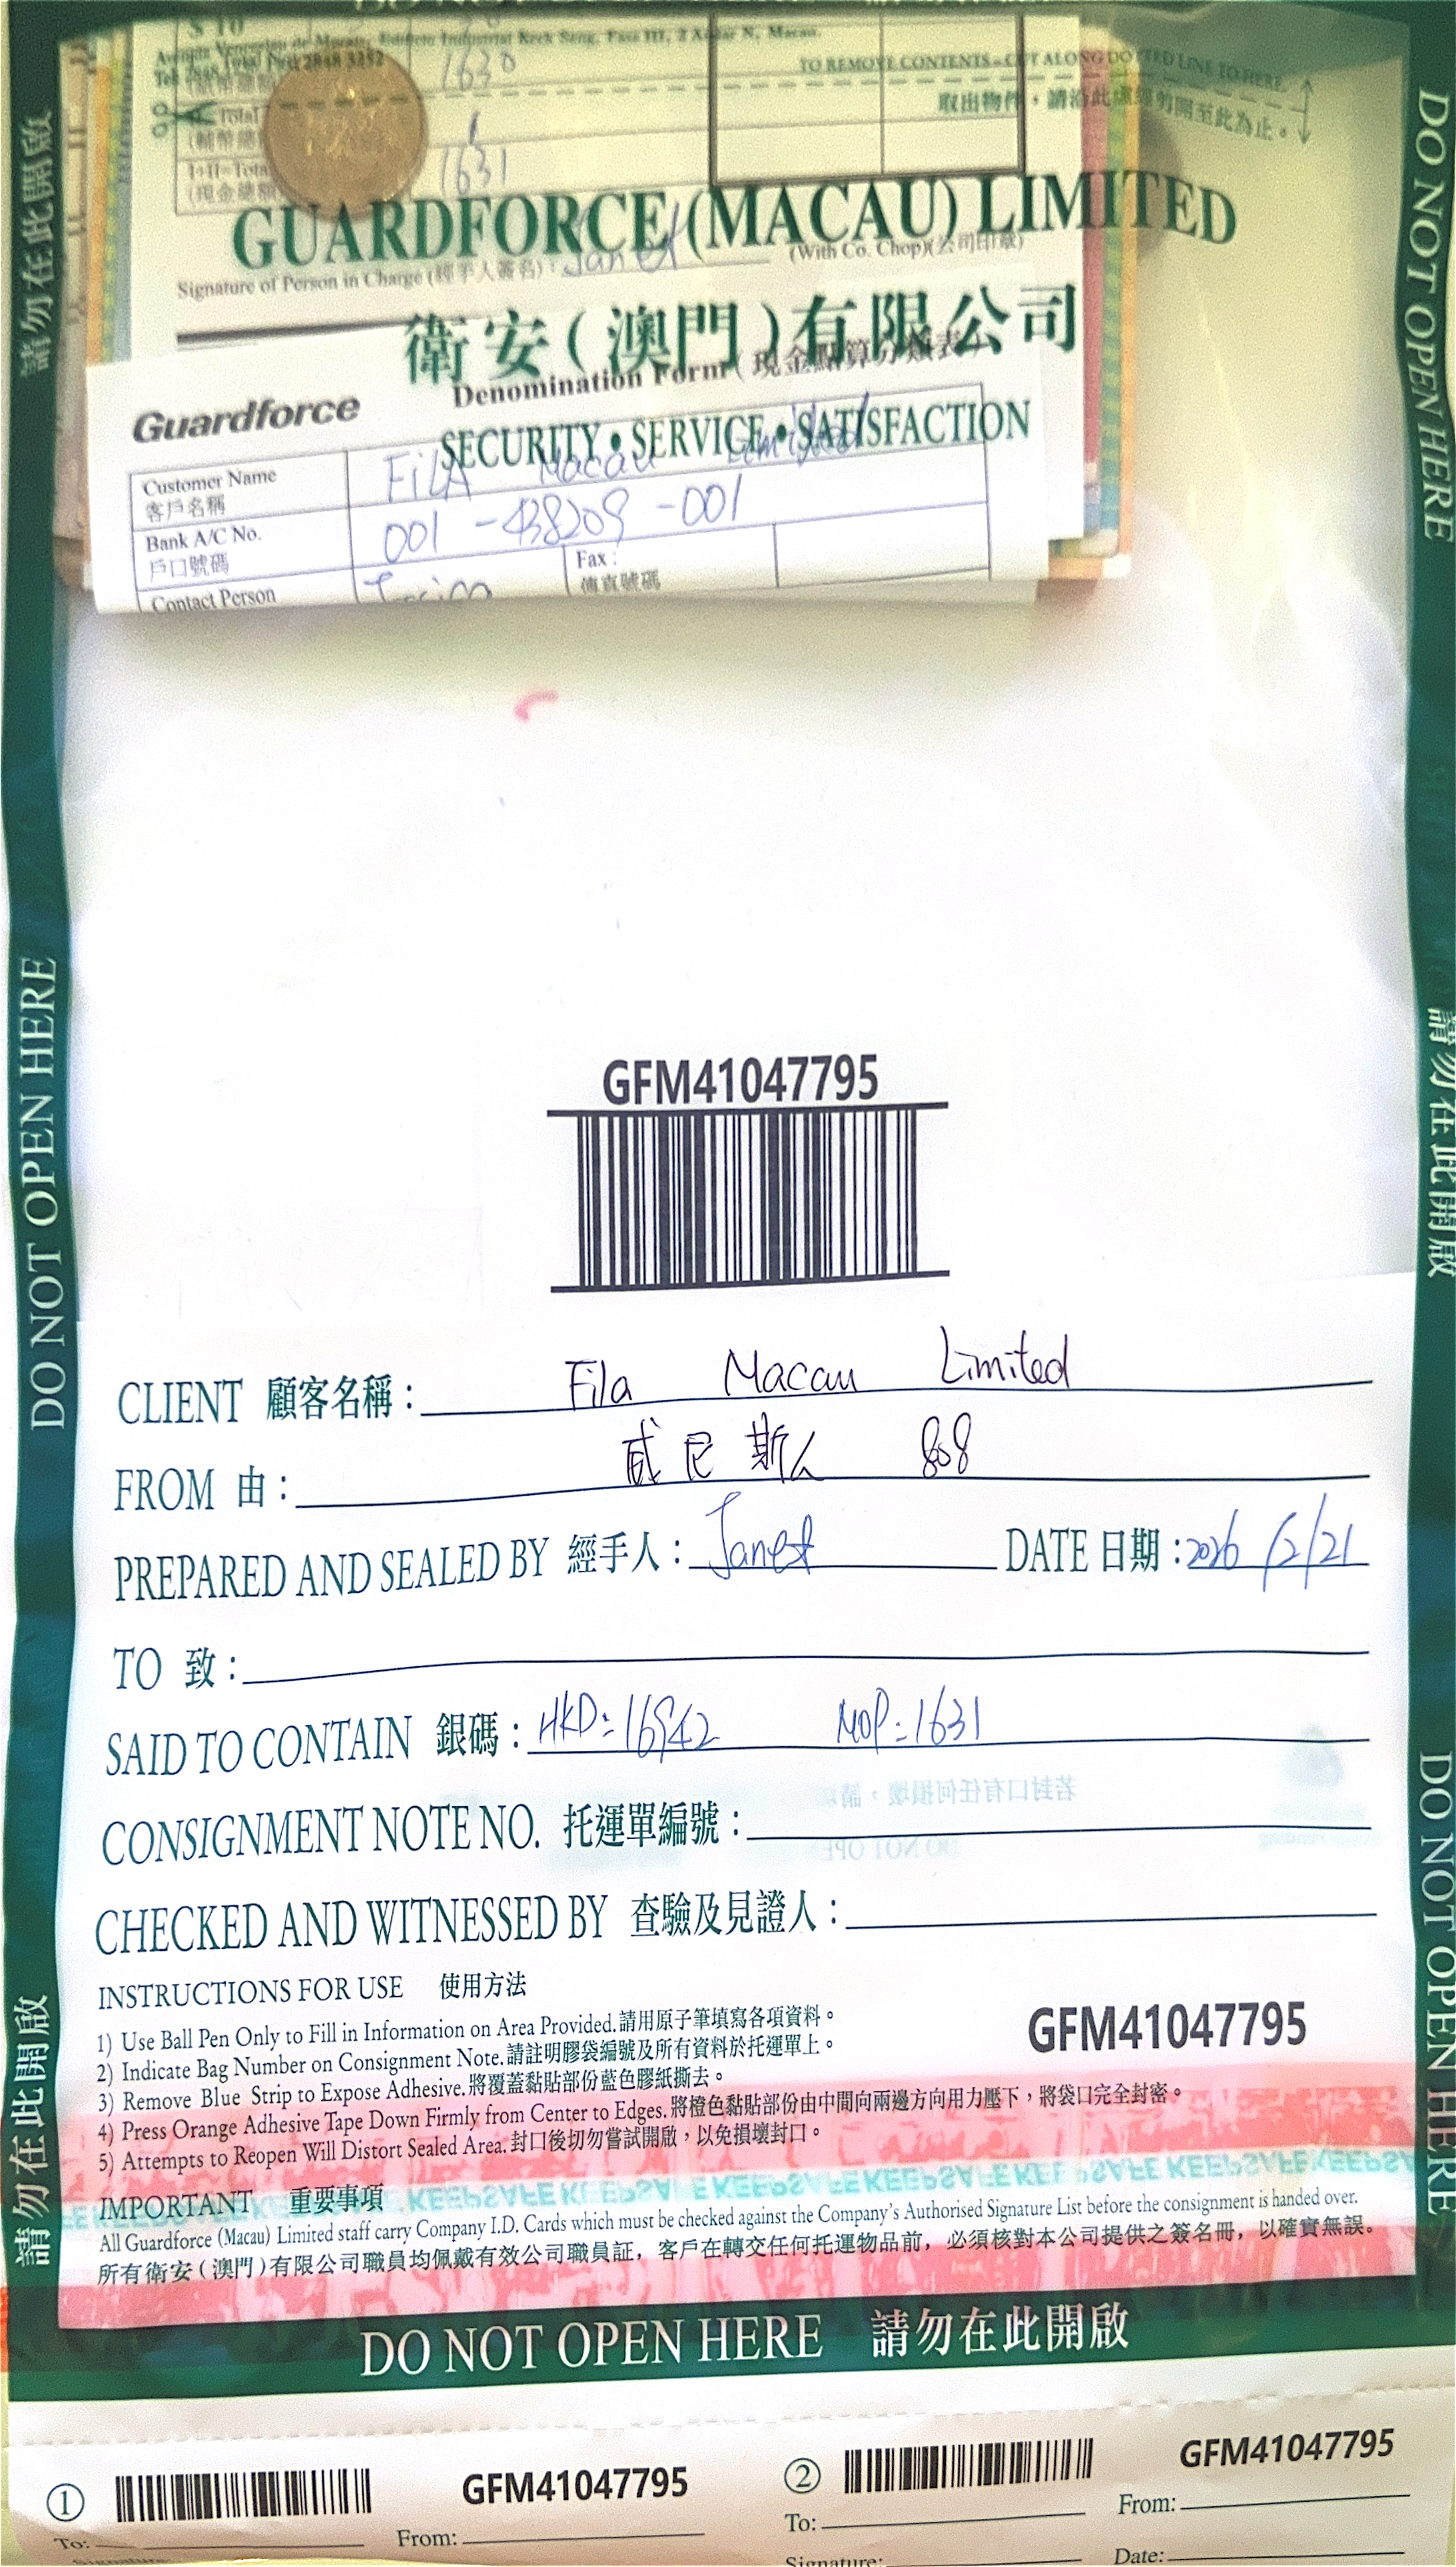 Avenida Venceslau de Morais, Edificio Industrial Keck Seng, Fase III, 2 Andar N, Macau.
2848 3252
1630
TO REMOVE CONTENTS - CUT ALONG DOTTED LINE TO HERE.
取出物件，請沿此虛線剪開至此為止。
1631
I+II=Total
(現金總額
GUARDFORCE (MACAU) LIMITED
Signature of Person in Charge (經手人簽名): Janet (With Co. Chop)(公司印章)
衛安（澳門）有限公司
Guardforce Denomination Form (現金點算分類表)
SECURITY • SERVICE • SATISFACTION
Customer Name FILA Macau Limited
客戶名稱
Bank A/C No. 001 - 438209 - 001
戶口號碼
Contact Person
Fax:
傳真號碼
GFM41047795
CLIENT 顧客名稱: Fila Macau Limited
FROM 由: 威尼斯人 808
PREPARED AND SEALED BY 經手人: Janet DATE 日期: 2026/2/21
TO 致:
SAID TO CONTAIN 銀碼: HKD: 16942 MOP: 1631
CONSIGNMENT NOTE NO. 托運單編號:
CHECKED AND WITNESSED BY 查驗及見證人:
INSTRUCTIONS FOR USE 使用方法
1) Use Ball Pen Only to Fill in Information on Area Provided.請用原子筆填寫各項資料。
2) Indicate Bag Number on Consignment Note.請註明膠袋編號及所有資料於托運單上。
3) Remove Blue Strip to Expose Adhesive.將覆蓋黏貼部份藍色膠紙撕去。
4) Press Orange Adhesive Tape Down Firmly from Center to Edges.將橙色黏貼部份由中間向兩邊方向用力壓下，將袋口完全封密。
5) Attempts to Reopen Will Distort Sealed Area.封口後切勿嘗試開啟，以免損壞封口。
GFM41047795
IMPORTANT 重要事項
All Guardforce (Macau) Limited staff carry Company I.D. Cards which must be checked against the Company's Authorised Signature List before the consignment is handed over.
所有衛安（澳門）有限公司職員均佩戴有效公司職員証，客戶在轉交任何托運物品前，必須核對本公司提供之簽名冊，以確實無誤。
DO NOT OPEN HERE 請勿在此開啟
① GFM41047795
To: From:
② GFM41047795
To: From:
Signature: Date:
請勿在此開啟
DO NOT OPEN HERE
請勿在此開啟
DO NOT OPEN HERE
請勿在此開啟
DO NOT OPEN HERE